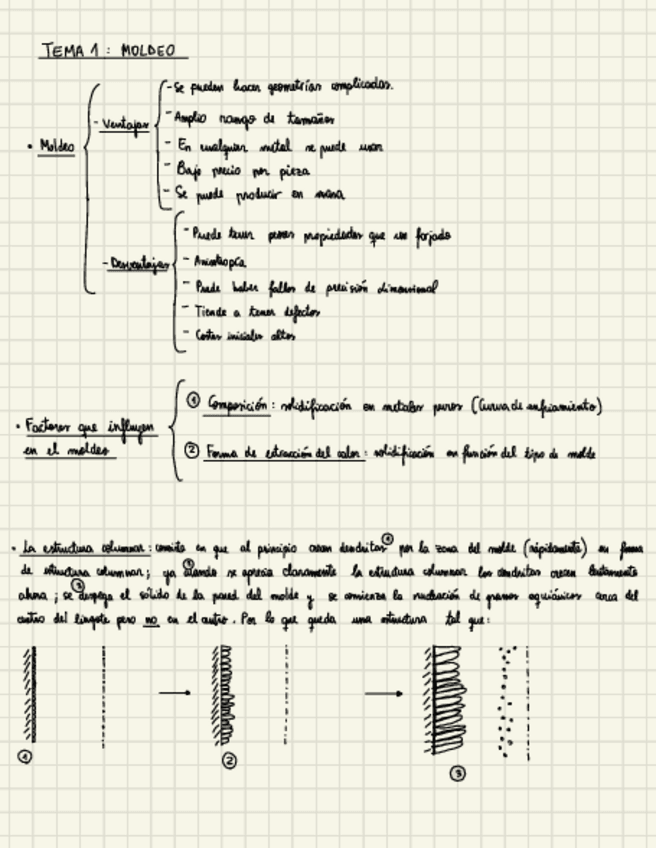 TEMA 1: MOLDEO
• Moldeo
- Ventajas
- Se pueden hacer geometrías complicadas.
- Amplio rango de tamaños
- En cualquier metal se puede usar
- Bajo precio por pieza
- Se puede producir en masa
- Desventajas
- Puede tener peores propiedades que un forjado
- Anisotropía
- Puede haber fallos de precisión dimensional
- Tiende a tener defectos
- Costes iniciales altos
• Factores que influyen
en el moldeo
① Composición: solidificación en metales puros (Curva de enfriamiento)
② Forma de extracción del calor: solidificación en función del tipo de molde
• La estructura columnar: consiste en que al principio crecen dendritas ① por la zona del molde (rápidamente) en forma
de estructura columnar; ya ② cuando se aprecia claramente la estructura columnar las dendritas crecen lentamente
ahora; se ③ despega el sólido de la pared del molde y se comienza la nucleación de granos equiáxicos cerca del
centro del lingote pero no en el centro. Por lo que queda una estructura tal que:
①
②
③